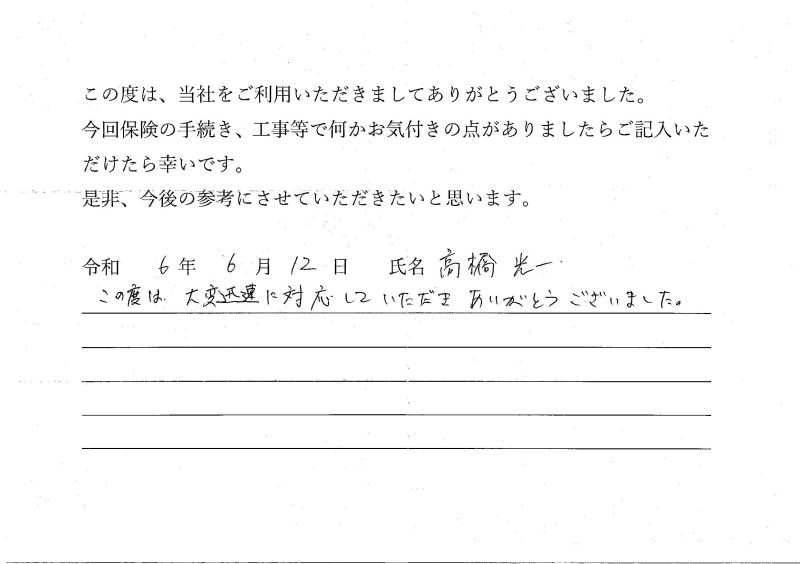 この度は、当社をご利用いただきましてありがとうございました。
今回保険の手続き、工事等で何かお気付きの点がありましたらご記入いた
だけたら幸いです。
是非、今後の参考にさせていただきたいと思います。
令和 6 年 6 月 12 日 氏名 高橋 光一
この度は 大変迅速に対応していただき ありがとうございました。